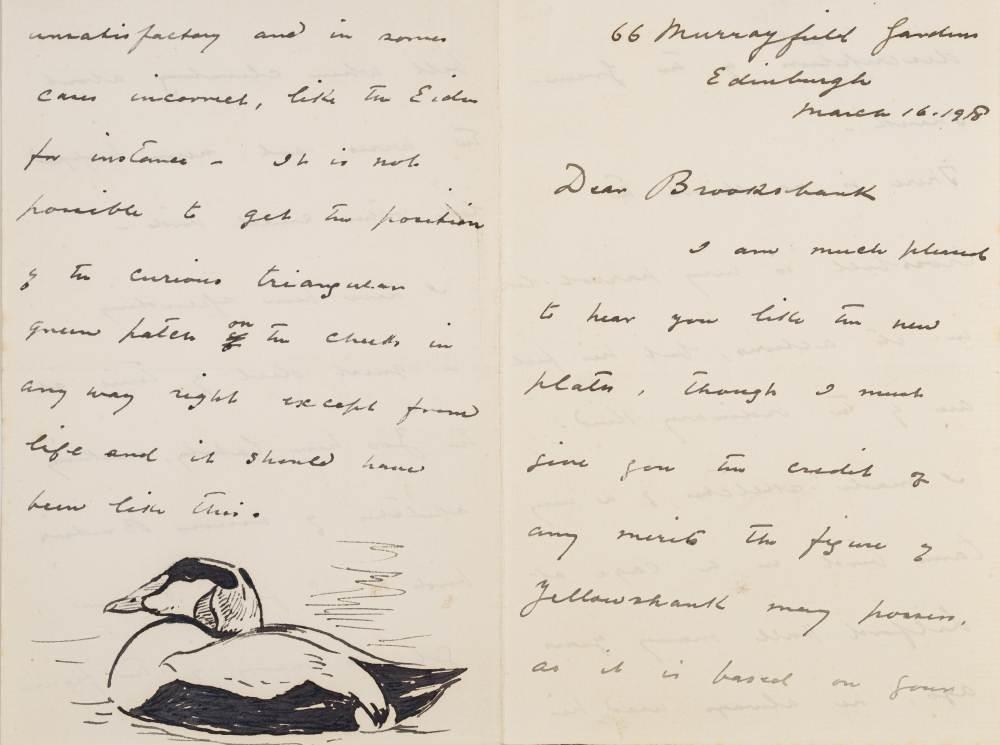 66 Murrayfield Gardens
Edinburgh
March 16. 1918
Dear Brooksbank
I am much pleased
to hear you like the new
plates, though I must
give you the credit of
any merits the figure of
Yellowshank may possess,
as it is based on your
unsatisfactory and in some
cases incorrect, like the Eider
for instance - It is not
possible to get the position
of the curious triangular
green patch on the cheeks in
any way right except from
life and it should have
been like this.